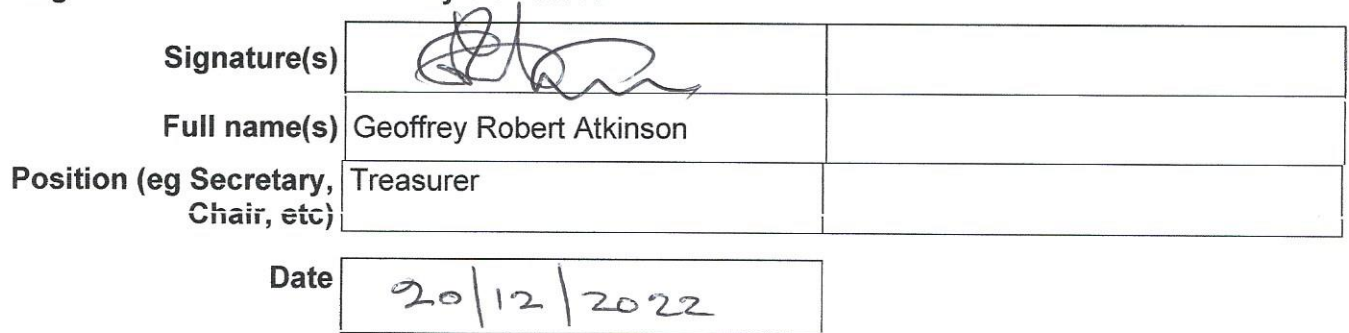 Signature(s)
Full name(s) Geoffrey Robert Atkinson
Position (eg Secretary, Treasurer
Chair, etc)
Date 20/12/2022